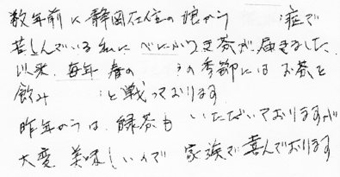 数年前に静岡在住の娘から 症で
苦しんでいる私に べにふうき茶が届きました。
以来、毎年 春の の季節には お茶を
飲み と戦っております
昨年からは、緑茶も いただいておりますが
大変 美味しいので 家族で喜んでおります